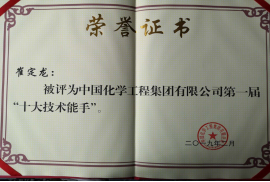 荣誉证书
崔定龙：
被评为中国化学工程集团有限公司第一届
“十大技术能手”。
二〇一九年二月